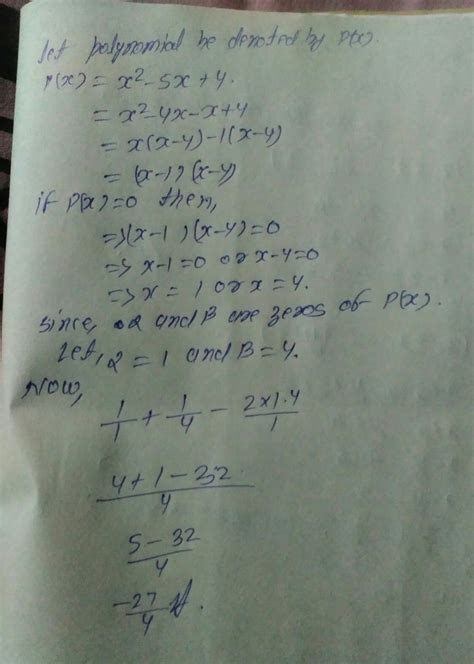 let polynomial be denoted by P(x).
P(x) = x² - 5x + 4.
= x² - 4x - x + 4
= x(x-4) - 1(x-4)
= (x-1) (x-4)
if P(x)=0 then,
=> (x-1) (x-4) = 0
=> x-1=0 or x-4=0
=> x = 1 or x = 4.
since, α and B are zeros of P(x).
Let, α = 1 and B = 4.
Now,
1/1 + 1/4 - 2×1·4/1
4+1-32/4
5-32/4
-27/4